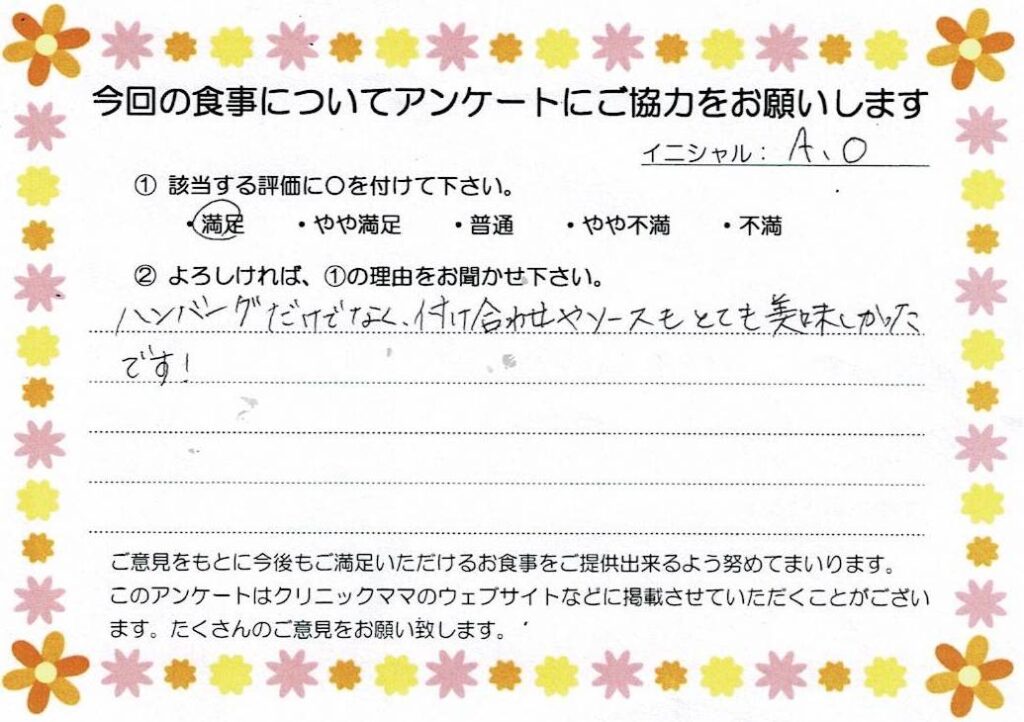 今回の食事についてアンケートにご協力をお願いします
イニシャル： A、O
① 該当する評価に〇を付けて下さい。
・満足 ・やや満足 ・普通 ・やや不満 ・不満
② よろしければ、①の理由をお聞かせ下さい。
ハンバーグだけでなく、付け合わせやソースもとても美味しかった
です！
ご意見をもとに今後もご満足いただけるお食事をご提供出来るよう努めてまいります。
このアンケートはクリニックママのウェブサイトなどに掲載させていただくことがござい
ます。たくさんのご意見をお願い致します。